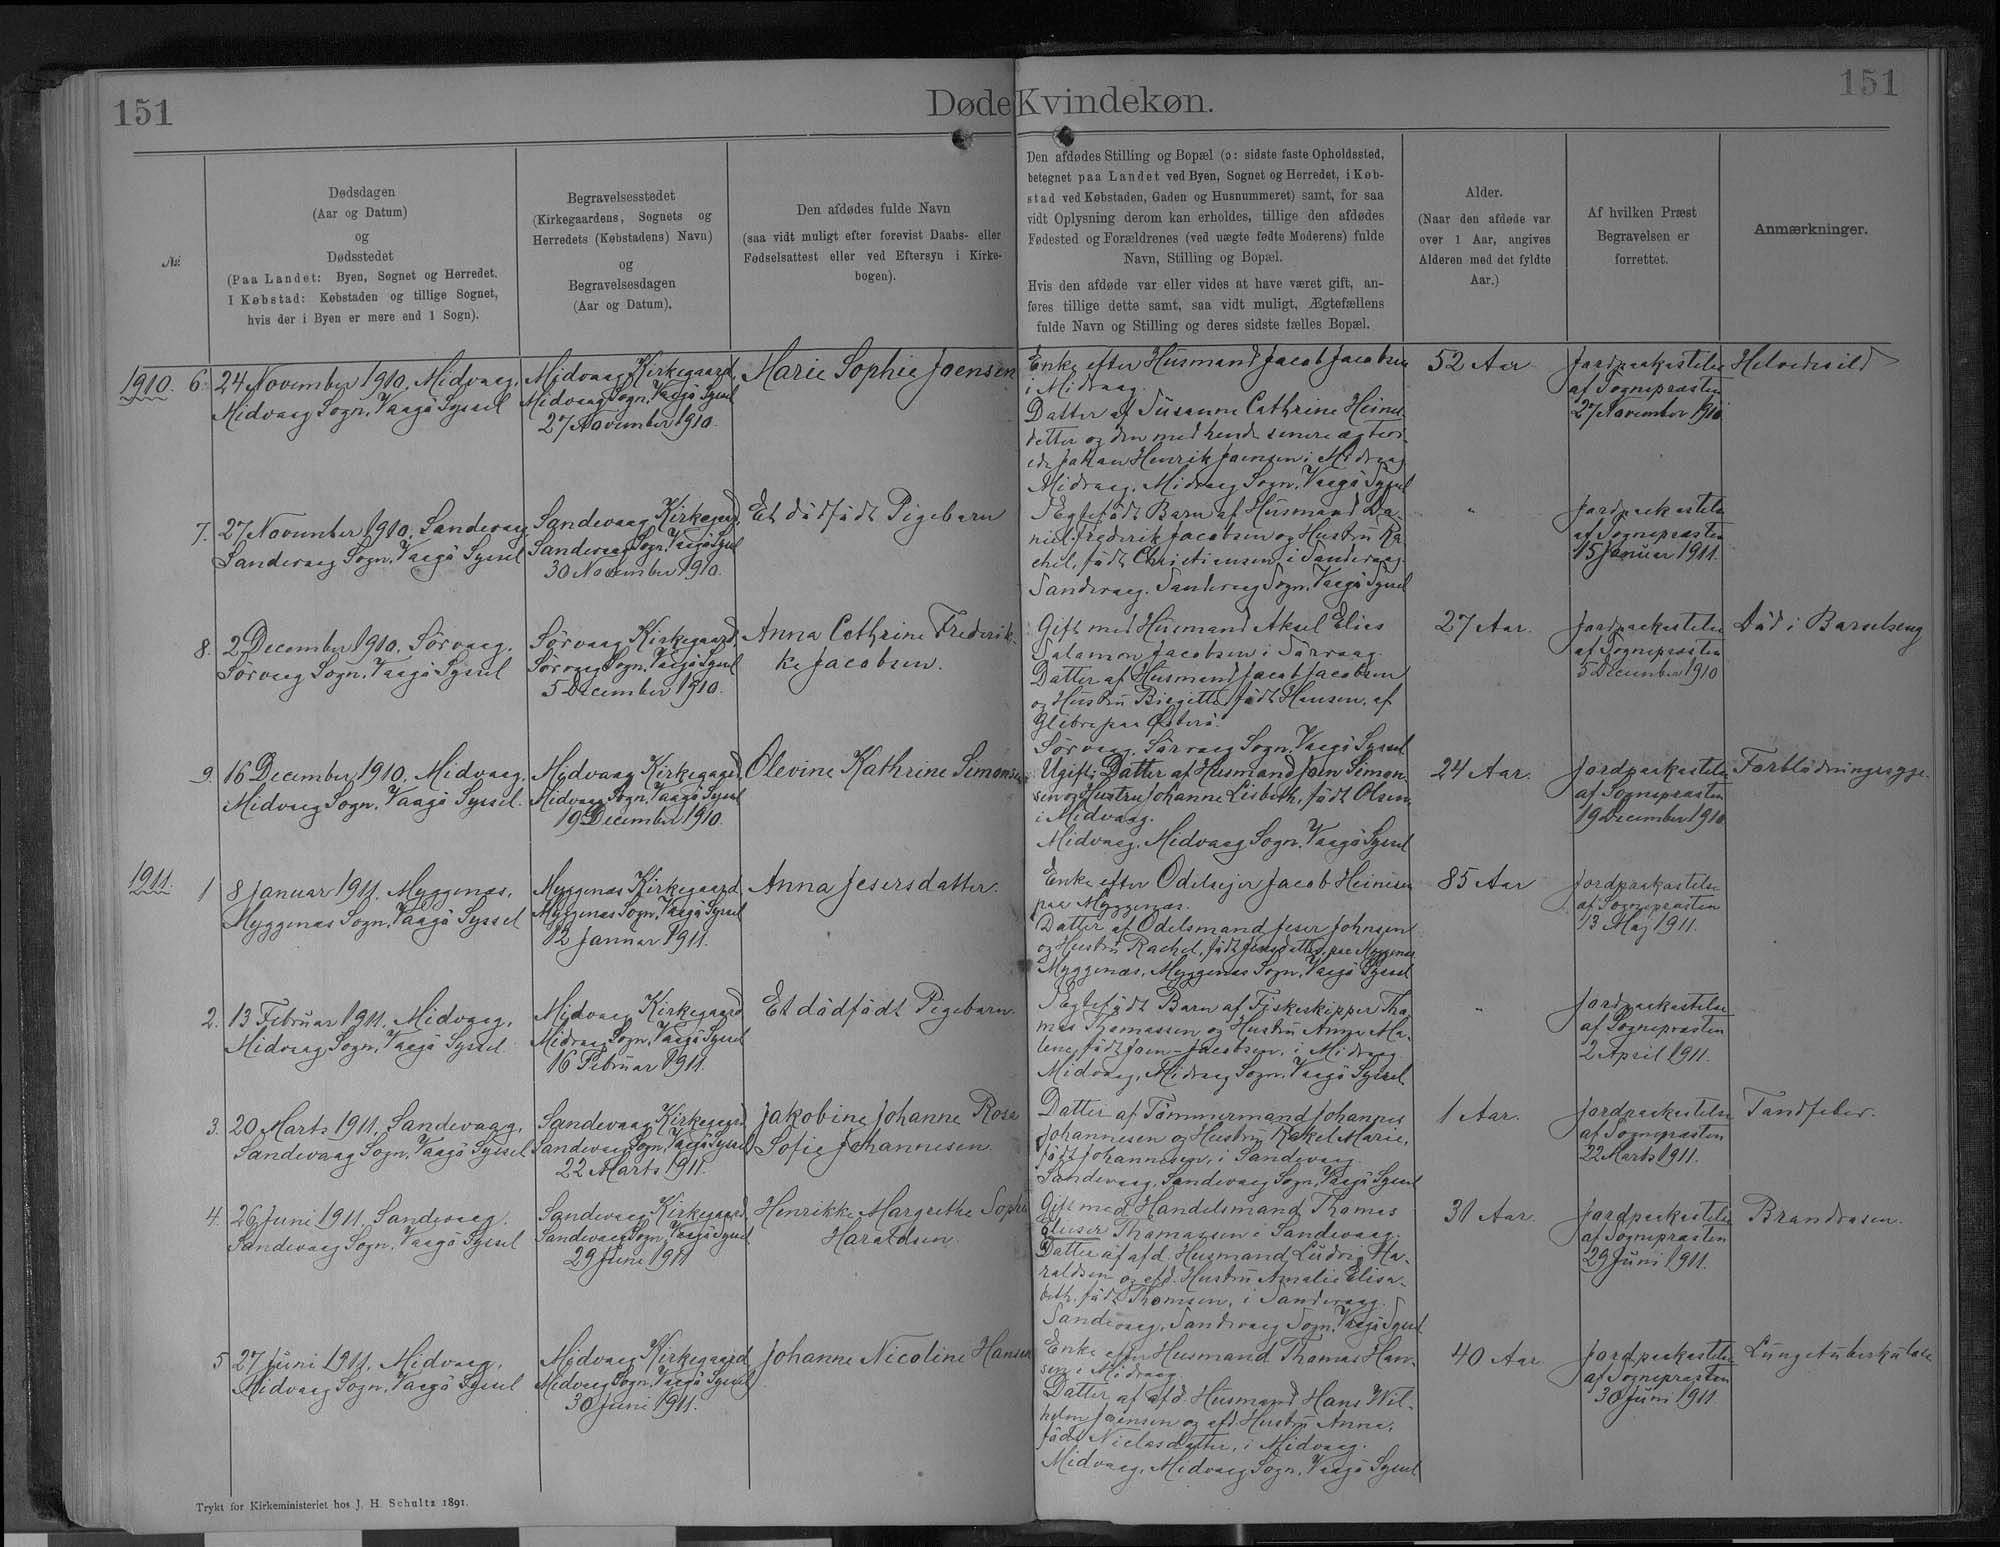 151
Døde Kvindekøn.
151
№
Dødsdagen
(Aar og Datum)
og
Dødsstedet
(Paa Landet: Byen, Sognet og Herredet.
I Købstad: Købstaden og tillige Sognet,
hvis der i Byen er mere end 1 Sogn).
Begravelsesstedet
(Kirkegaardens, Sognets og
Herredets (Købstadens) Navn)
og
Begravelsesdagen
(Aar og Datum).
Den afdødes fulde Navn
(saa vidt muligt efter forevist Daabs- eller
Fødselsattest eller ved Eftersyn i Kirke-
bogen).
Den afdødes Stilling og Bopæl (ɔ: sidste faste Opholdssted,
betegnet paa Landet ved Byen, Sognet og Herredet, i Køb-
stad ved Købstaden, Gaden og Husnummeret) samt, for saa
vidt Oplysning derom kan erholdes, tillige den afdødes
Fødested og Forældrenes (ved uægte fødte Moderens) fulde
Navn, Stilling og Bopæl.
Hvis den afdøde var eller vides at have været gift, an-
føres tillige dette samt, saa vidt muligt, Ægtefællens
fulde Navn og Stilling og deres sidste fælles Bopæl.
Alder.
(Naar den afdøde var
over 1 Aar, angives
Alderen med det fyldte
Aar.)
Af hvilken Præst
Begravelsen er
forrettet.
Anmærkninger.
1910. 6.
24 November 1910, Midvaag,
Midvaag Sogn, Vaagö Syssel
Midvaag Kirkegaard,
Midvaag Sogn, Vaagö Syssel
27 November 1910.
Marie Sophie Joensen
Enke efter Husmand Jacob Jacobsen
i Midvaag.
Datter af Susanne Cathrine Heines
datter og den med hende senere ægtevi-
ede Johan Henrik Joensen i Midvaag
Midvaag, Midvaag Sogn, Vaagö Syssel
52 Aar
Jordpaakastelse
af Sognepræsten
27 November 1910
Helvedesild
7.
27 November 1910, Sandevaag,
Sandevaag Sogn, Vaagö Syssel
Sandevaag Kirkegaard,
Sandevaag Sogn, Vaagö Syssel
30 November 1910.
Et dödfödt Pigebarn
Ægtefödt Barn af Husmand Da-
niel Frederik Jacobsen og Hustru Ra-
chel, födt Christiansen, i Sandevaag.
Sandevaag, Sandevaag Sogn, Vaagö Syssel
"
Jordpaakastelse
af Sognepræsten
15 Januar 1911.
8.
2 December 1910, Sörvaag,
Sörvaag Sogn, Vaagö Syssel
Sörvaag Kirkegaard,
Sörvaag Sogn, Vaagö Syssel
5 December 1910.
Anna Cathrine Frederik-
ke Jacobsen.
Gift med Husmand Aksel Elias
Salamon Jacobsen i Sörvaag.
Datter af Husmand Jacob Jacobsen
og Hustru Birgitte, födt Hansen, af
Glibre paa Österö.
Sörvaag, Sörvaag Sogn, Vaagö Syssel
27 Aar.
Jordpaakastelse
af Sognepræsten
5 December 1910
Död i Barselseng
9.
16 December 1910, Midvaag,
Midvaag Sogn, Vaagö Syssel
Midvaag Kirkegaard,
Midvaag Sogn, Vaagö Syssel
19 December 1910.
Olevine Kathrine Simonsen
Ugift. Datter af Husmand Joen Simon-
sen og Hustru Johanne Lisbeth, födt Olsen,
i Midvaag.
Midvaag, Midvaag Sogn, Vaagö Syssel
24 Aar.
Jordpaakastelse
af Sognepræsten
19 December 1910
Forblödningssyge.
1911. 1
8 Januar 1911, Myggenæs,
Myggenæs Sogn, Vaagö Syssel
Myggenæs Kirkegaard,
Myggenæs Sogn, Vaagö Syssel
12 Januar 1911.
Anna Jesersdatter.
Enke efter Odelsejer Jacob Heinesen
paa Myggenæs.
Datter af Odelsmand Jeser Johnsen
og Hustru Rachel, födt Jensdatter, paa Myggenæs
Myggenæs, Myggenæs Sogn, Vaagö Syssel
85 Aar
Jordpaakastelse
af Sognepræsten
13 Maj 1911.
2.
13 Februar 1911, Midvaag,
Midvaag Sogn, Vaagö Syssel
Midvaag Kirkegaard
Midvaag Sogn, Vaagö Syssel
16 Februar 1911.
Et dödfödt Pigebarn.
Ægtefödt Barn af Fiskeskipper Tho-
mas Thomassen og Hustru Anna Ma-
lene, födt Joen-Jacobsen, i Midvaag.
Midvaag, Midvaag Sogn, Vaagö Syssel
"
Jordpaakastelse
af Sognepræsten
2 April 1911.
3.
20 Marts 1911, Sandevaag,
Sandevaag Sogn, Vaagö Syssel
Sandevaag Kirkegaard
Sandevaag Sogn, Vaagö Syssel
22 Marts 1911.
Jakobine Johanne Rosa
Sofie Johannesen
Datter af Tömmermand Johannes
Johannesen og Hustru Rakel Marie,
födt Johannesen, i Sandevaag.
Sandevaag, Sandevaag Sogn, Vaagö Syssel
1 Aar.
Jordpaakastelse
af Sognepræsten
22 Marts 1911.
Tandfeber.
4.
26 Juni 1911, Sandevaag,
Sandevaag Sogn, Vaagö Syssel
Sandevaag Kirkegaard
Sandevaag Sogn, Vaagö Syssel
29 Juni 1911
Henrikke Margrethe Sophie
Haraldsen.
Gift med Handelsmand Thomas
Elieser Thomassen i Sandevaag.
Datter af afd. Husmand Ludvig Ha-
raldsen og afd. Hustru Amalie Elisa-
beth, födt Thomsen, i Sandevaag.
Sandevaag, Sandevaag Sogn, Vaagö Syssel
31 Aar.
Jordpaakastelse
af Sognepræsten
29 Juni 1911.
Brandrosen.
5
27 Juni 1911, Midvaag,
Midvaag Sogn, Vaagö Syssel
Midvaag Kirkegaard,
Midvaag Sogn, Vaagö Syssel
30 Juni 1911.
Johanne Nicoline Hansen
Enke efter Husmand Thomas Han-
sen i Midvaag.
Datter af afd. Husmand Hans Wil-
helm Joensen og afd. Hustru Anna,
födt Niclasdatter, i Midvaag.
Midvaag, Midvaag Sogn, Vaagö Syssel
40 Aar
Jordpaakastelse
af Sognepræsten
30 Juni 1911
Lungetuberkulose
Trykt for Kirkeministeriet hos J. H. Schultz 1891.